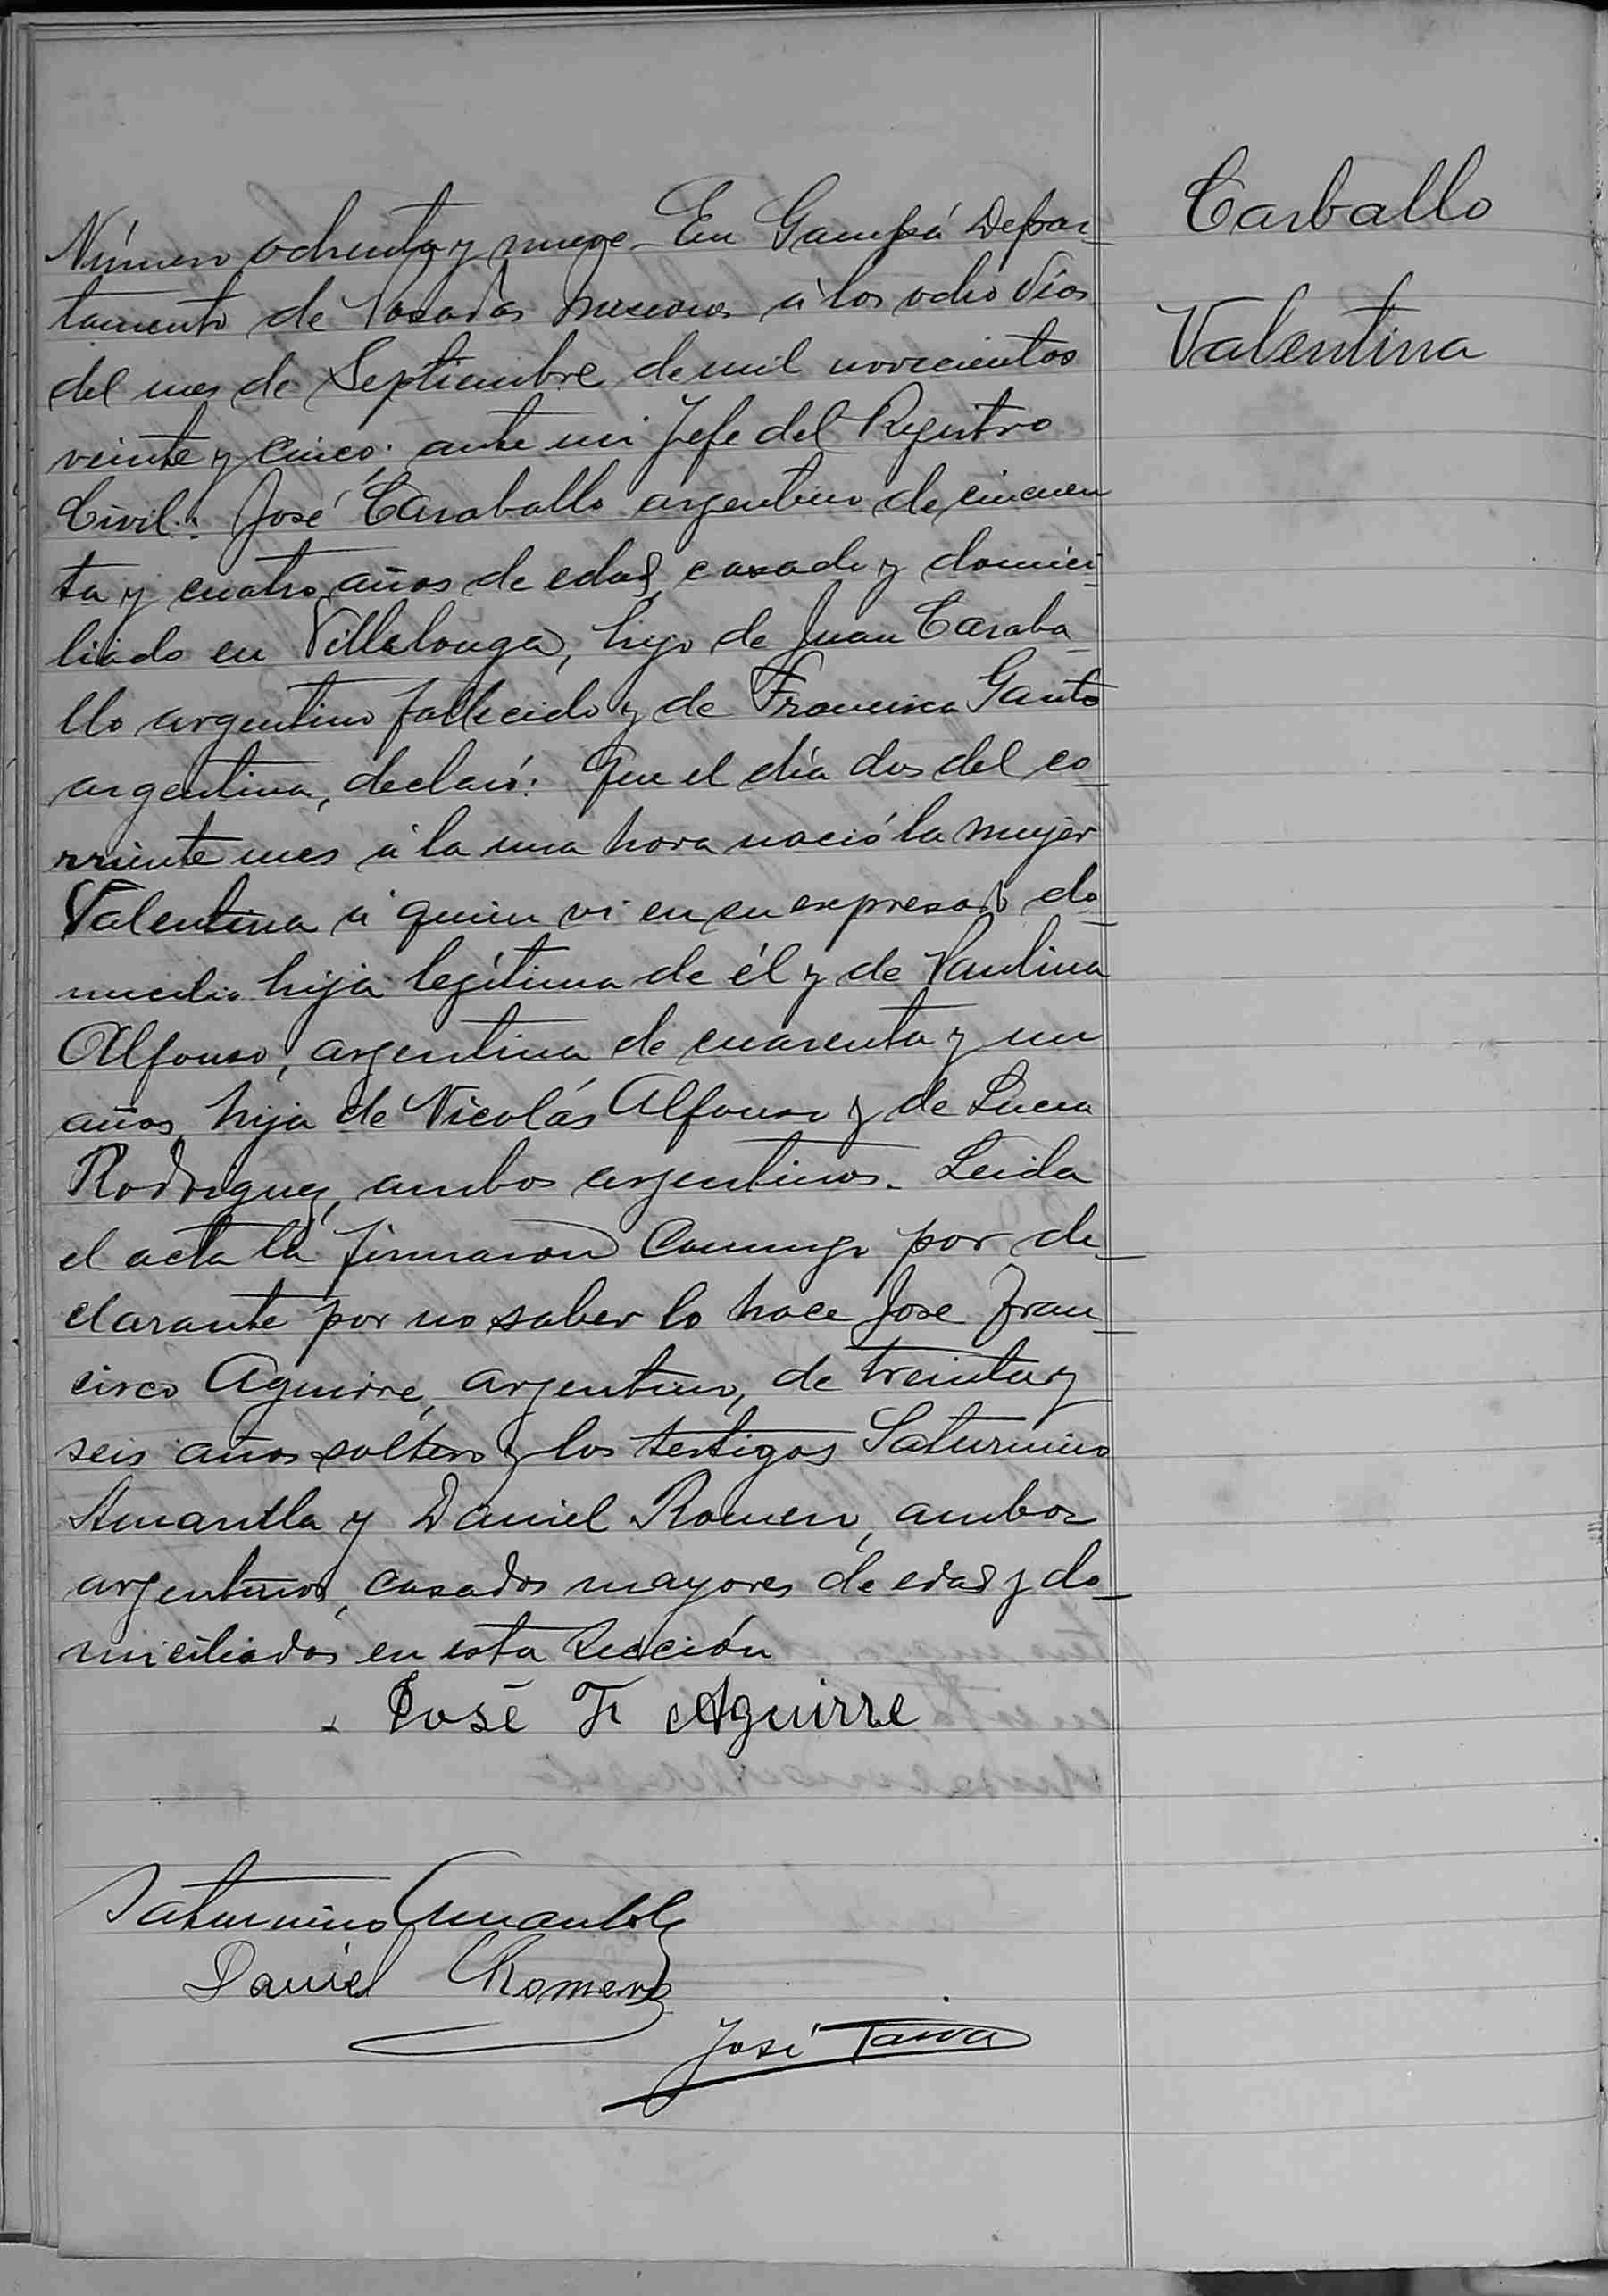 Carballo
Valentina
Número ochenta y nueve - En Garupá Depar-
tamento de Posadas Misiones á los ocho días
del mes de Septiembre de mil novecientos
veinte y cinco: ante mi Jefe del Registro
Civil: José Caraballo argentino de cincuen
ta y cuatro años de edad, casado y domici-
liado en Villalonga, hijo de Juan Caraba
llo argentino fallecido y de Francisca Gauto
argentina, declaró: Que el día dos del co-
rriente mes á la una hora nació la mujer
Valentina á quien vi en su expresado do-
micilio hija legítima de él y de Paulina
Alfonso, argentina de cuarenta y un
años, hija de Nicolás Alfonso y de Lucia
Rodriguez, ambos argentinos. Leida
el acta la firmaron conmigo por de-
clarante por no saber lo hace Jose Fran-
cisco Aguirre, argentino, de treinta y
seis años soltero y los testigos Saturnino
Amarilla y Daniel Romero, ambos
argentinos, casados mayores de edad y do-
miciliados en esta Sección
José F Aguirre
Saturnino Amarilla
Daniel Romero
José